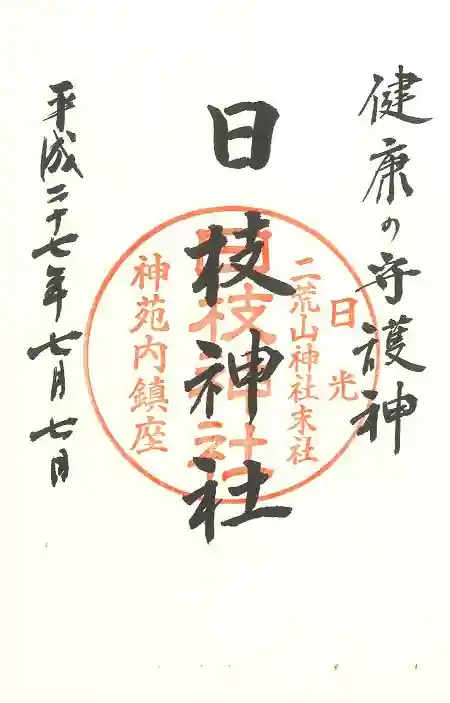 健康の守護神
日枝神社
日光
二荒山神社末社
日枝神社
神苑内鎮座
平成二十七年七月七日